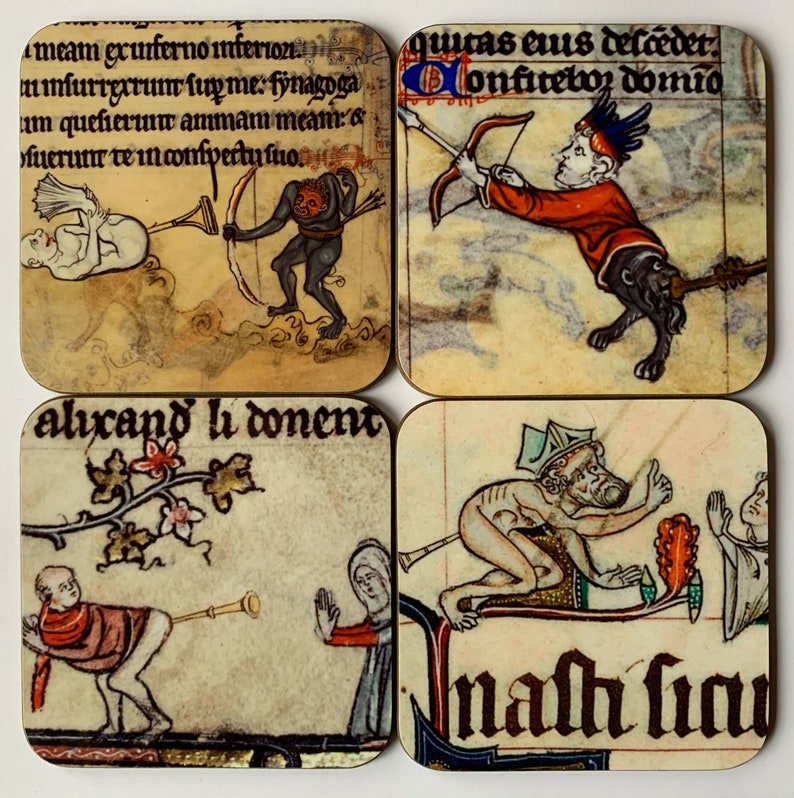 meam ex inferno inferiori.
u insurrexerunt sup me: synagoga
um quesierunt animam meam: &
osuerunt te in conspectu suo.
quitas eius descēdet.
Confitebor domino
alixand li donent
nasti sicu